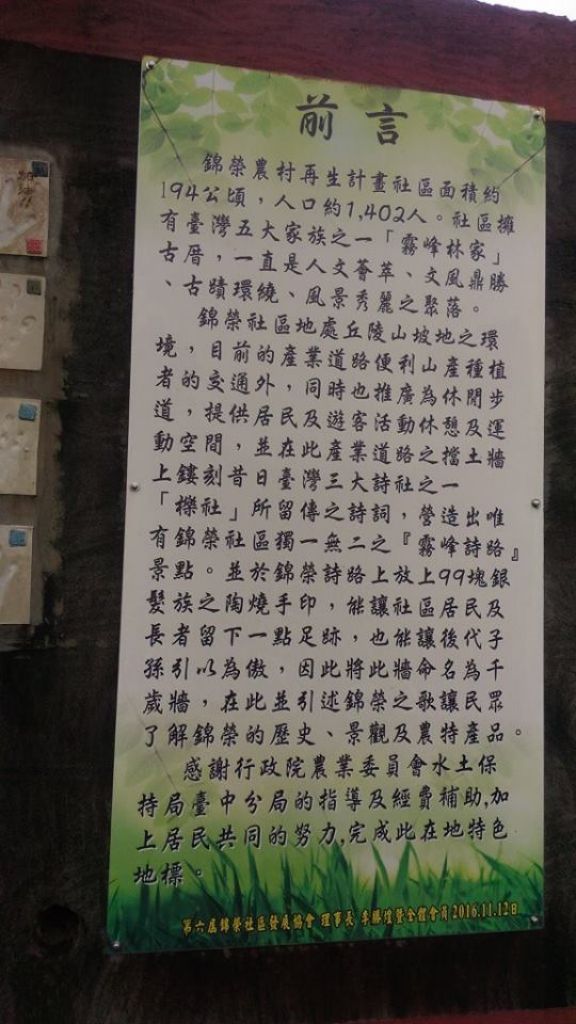 前言
錦榮農村再生計畫社區面積約
194公頃，人口約1,402人。社區擁
有臺灣五大家族之一「霧峰林家」
古厝，一直是人文薈萃、文風鼎勝
、古蹟環繞、風景秀麗之聚落。
錦榮社區地處丘陵山坡地之環
境，目前的產業道路便利山產種植
者的交通外，同時也推廣為休閒步
道，提供居民及遊客活動休憩及運
動空間，並在此產業道路之擋土牆
上鏤刻昔日臺灣三大詩社之一
「櫟社」所留傳之詩詞，營造出唯
有錦榮社區獨一無二之『霧峰詩路』
景點。並於錦榮詩路上放上99塊銀
髮族之陶燒手印，能讓社區居民及
長者留下一點足跡，也能讓後代子
孫引以為傲，因此將此牆命名為千
歲牆，在此並引述錦榮之歌讓民眾
了解錦榮的歷史、景觀及農特產品。
感謝行政院農業委員會水土保
持局臺中分局的指導及經費補助,加
上居民共同的努力,完成此在地特色
地標。
第六屆錦榮社區發展協會 理事長 李勝煌暨全體會員 2016.11.12日